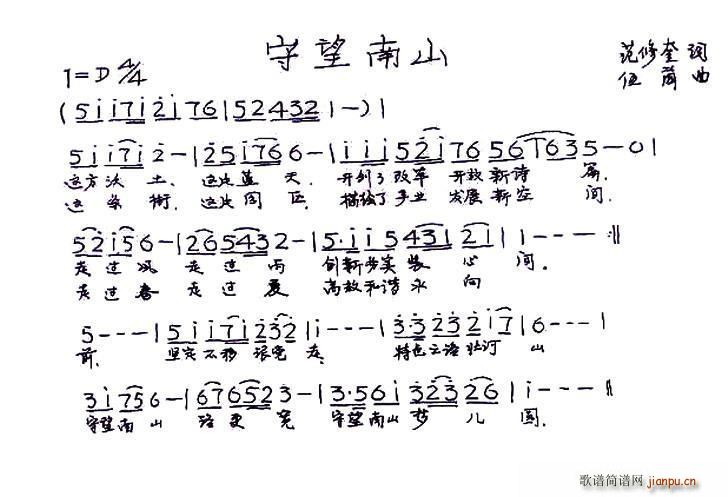 守望南山
范修奎 词
1=D 4/4 伍嵩 曲
(5 i i 7 i 2 i 7 6 | 5 2 4 3 2 | 1 —) |
5 i i 7 i 2 — | 2 5 i 7 6 6 — | i i i 5 2 i 7 6 5 6 i 7 6 3 5 — 0 |
这方沃土, 这片蓝天, 开创了改革 开放新诗篇,
这条街, 这片园区, 描绘了事业 发展新空间,
5 2 i 5 6 — | 2 6 5 4 3 2 — | 5 · i i 5 4 3 1 2 i | 1 — — — :||
走过风 走过雨 创新务实 装心间.
走过春 走过夏 高效和谐永向
5 — — — | 5 i i 7 i 2 3 2 | i — — — | 3 3 2 3 2 i 7 | 6 — — — |
前. 坚定不移跟党走, 特色之路 山
3 i 7 5 6 — | 6 7 6 5 2 3 — | 3 · 5 6 i 3 2 3 2 6 | i — — — ||
守望南山 路更宽 守望南山梦儿圆.
歌谱简谱网
jianpu.cn